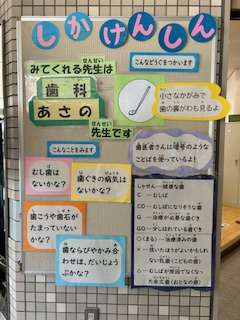 しかけんしん
みてくれる先生は
歯科
あさの
先生です
こんなどうぐをつかいます
小さなかがみで
歯の裏がわも見るよ
こんなことをみます
むし歯は
ないかな?
歯ぐきの病気は
ないかな?
歯こうや歯石が
たまっていない
かな?
歯ならびやかみ合
わせは、だいじょう
ぶかな?
歯医者さんは暗号のような
ことばを使っているよ!
C・・・むしば
CO・・・むしばになりそうな歯
G・・・治療が必要な歯ぐき
○(まる)・・・治療済みの歯